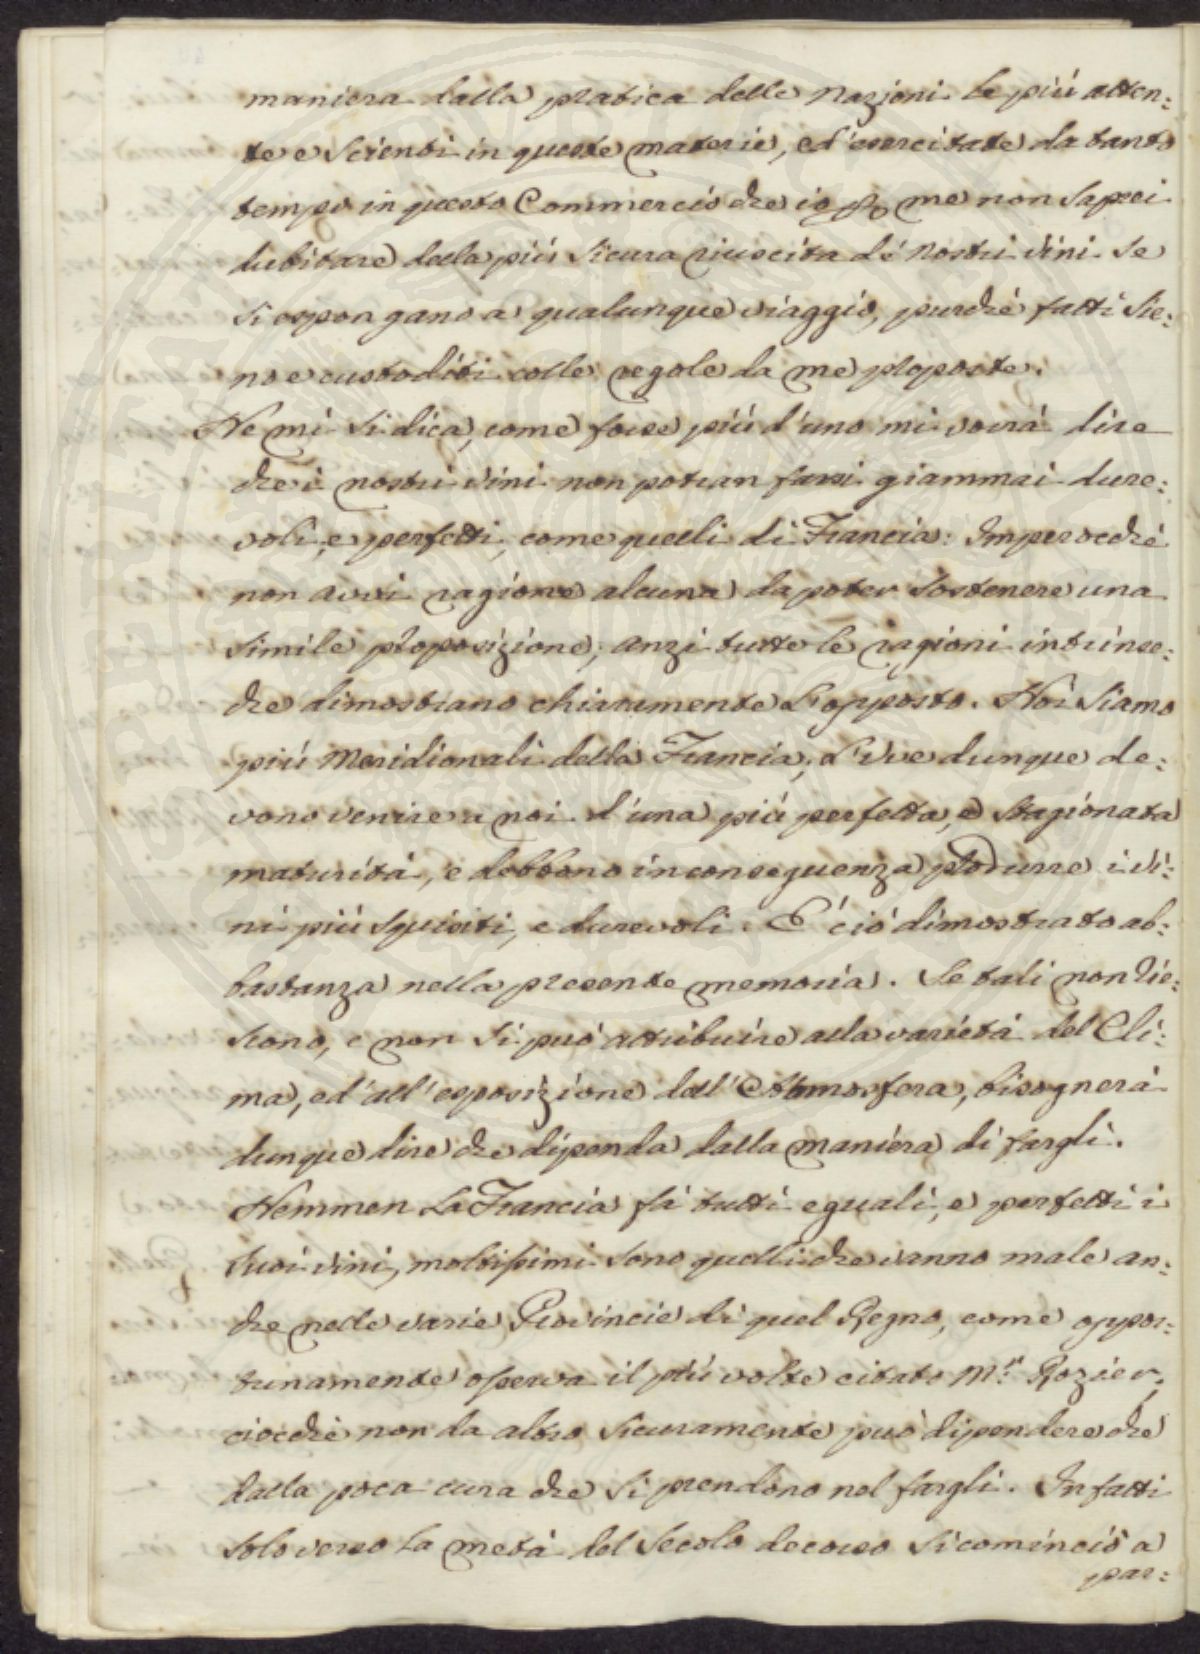 maniera dalla pratica delle Nazioni le più atten:
te e scienti in queste materie, ed' esercitate da tanto
tempo in questo Commercio che io p me non saprei
dubitare della più sicura riuscita de' nostri vini se
si espongano a qualunque viaggio, purchè fatti sie:
no e custoditi colle regole da me proposte.
Ne mi si dica, come forse più d'uno mi vorrà dire
che i nostri vini non potran farsi giammai dure:
voli, e perfetti, come quelli di Francia: Imperocchè
non avvi ragione alcuna da poter sostenere una
simile proposizione; anzi tutte le ragioni intrinse:
che dimostrano chiaramente L'opposto. Noi siamo
più Meridionali della Francia; L'Uve dunque de:
vono venire a noi d'una più perfetta, e stagionata
maturità, e debbono in conseguenza produrre i vi:
ni più squisiti, e durevoli. E' ciò dimostrato ab:
bastanza nella presente memoria. Se tali non rie:
scono, e non si può attribuire alla varietà del Cli:
ma, ed' all' esposizione dell' Atmosfera, bisognerà
dunque dire che dipenda dalla maniera di fargli.
Nemmen La Francia fà tutti eguali, e perfetti i
suoi vini, moltissimi sono quelli che vanno male an:
che nelle varie Provincie di quel Regno, come oppor:
tunamente osserva il più volte citato M.r Rozier;
ciocchè non da altro sicuramente può dipendere che
dalla poca cura che si prendono nel fargli. Infatti
solo verso la metà del Secolo decorso si cominciò a
par: